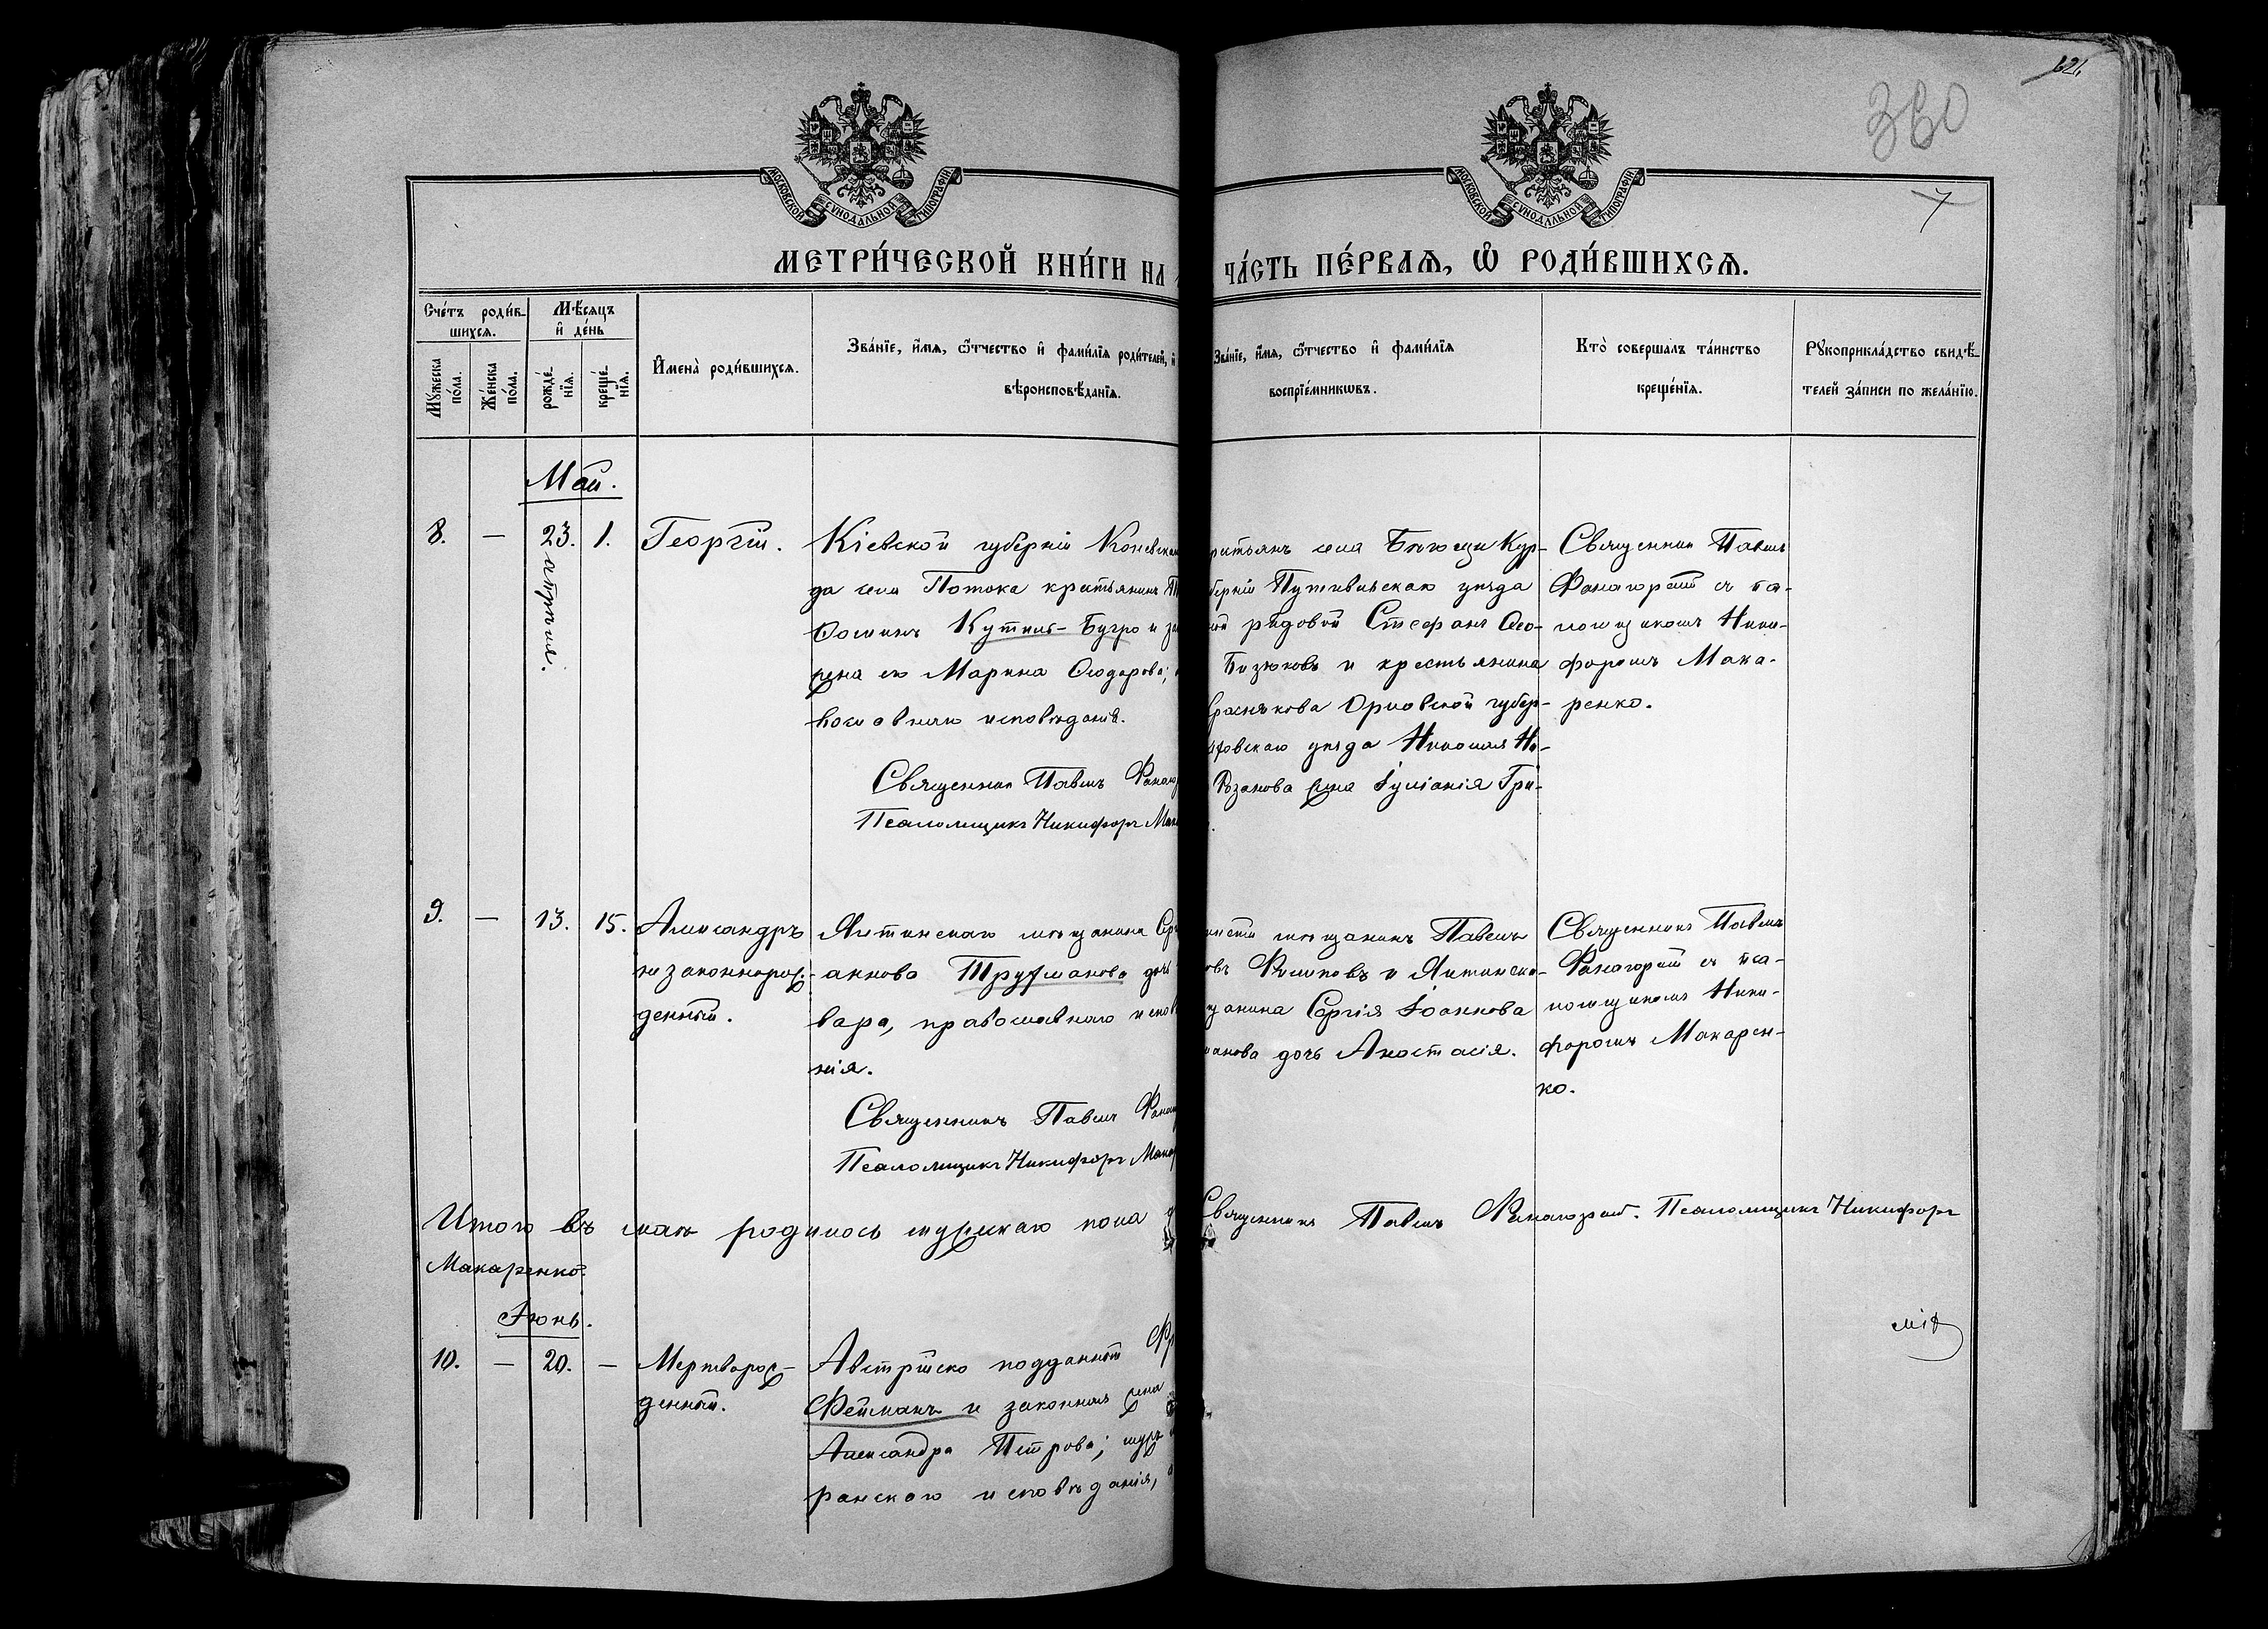 621
360
7
МОСКОВСКОЙ СѴНОДАЛЬНОЙ ТИПОГРАФІИ
МОСКОВСКОЙ СѴНОДАЛЬНОЙ ТИПОГРАФІИ
МЕТРИ́ЧЕСКОЙ КНИ́ГИ НА
ЧА́СТЬ ПЕ́РВАѦ, Ѽ РОДИ́ВШИХСѦ.
Сче́тъ роди́в-
шихся.
Мѣ́сяцъ
и҆ де́нь
Мꙋ́жеска
по́ла.
Же́нска
по́ла.
рожде́-
нїя.
креще́-
нїя.
И҆мена̀ роди́вшихся.
Зва́нїе, и҆́мя, ѻ҆́тчество и҆ фами́лїя роди́телей, и҆
вѣроисповѣ́данїя.
Зва́нїе, и҆́мя, ѻ҆́тчество и҆ фами́лїя
воспрїе́мникωвъ.
Кто̀ соверша́лъ та́инство
креще́нїя.
Рꙋкоприкла́дство свидѣ́-
телей за́писи по жела́нїю.
Май.
8. — 23. апрѣля. 1. Георгій.
Кіевской губерніи Каневска
да села Потока крестьянинъ
Кутний-Бугро и за
жена его Марина Ѳеодорова;
вославнаго исповѣданія.
Священникъ Павелъ Фанаг
Псаломщикъ Никифоръ Мак
рестьянъ села Кур-
берніи Путивльскаго уѣзда
рядовой Стефанъ Ѳео-
Бизюковъ и крестьянина
Орловской губер-
овскаго уѣзда Николая Ни-
Розанова жена Іуліанія Гри-
Священникъ Павелъ
Фанагорскій съ пса-
ломщикомъ Ники-
форомъ Мака-
ренко.
9. — 13. 15. Александръ
незаконнорож-
денный.
Ялтинскаго мѣщанина Сер
аннова Труфманова дочь
вара, православнаго испов
нія.
Священникъ Павелъ Фанаг
Псаломщикъ Никифоръ Макар
мѣщанинъ Павелъ
овъ Филиповъ и Ялтинска-
щанина Сергія Іоаннова
манова дочь Анастасія.
Священникъ Павелъ
Фанагорскій съ пса-
ломщикомъ Ники-
форомъ Макарен-
ко.
Итого въ маѣ родилось мужскаго пола
Священникъ Павелъ Фанагорскій. Псаломщикъ Никифоръ
Макаренко.
Іюнь.
10. — 20. — Мертворож-
денный.
Австрійско подданный Фр
Фейманъ и законная жена
Александра Петрова; мужъ
ранскаго исповѣданія,